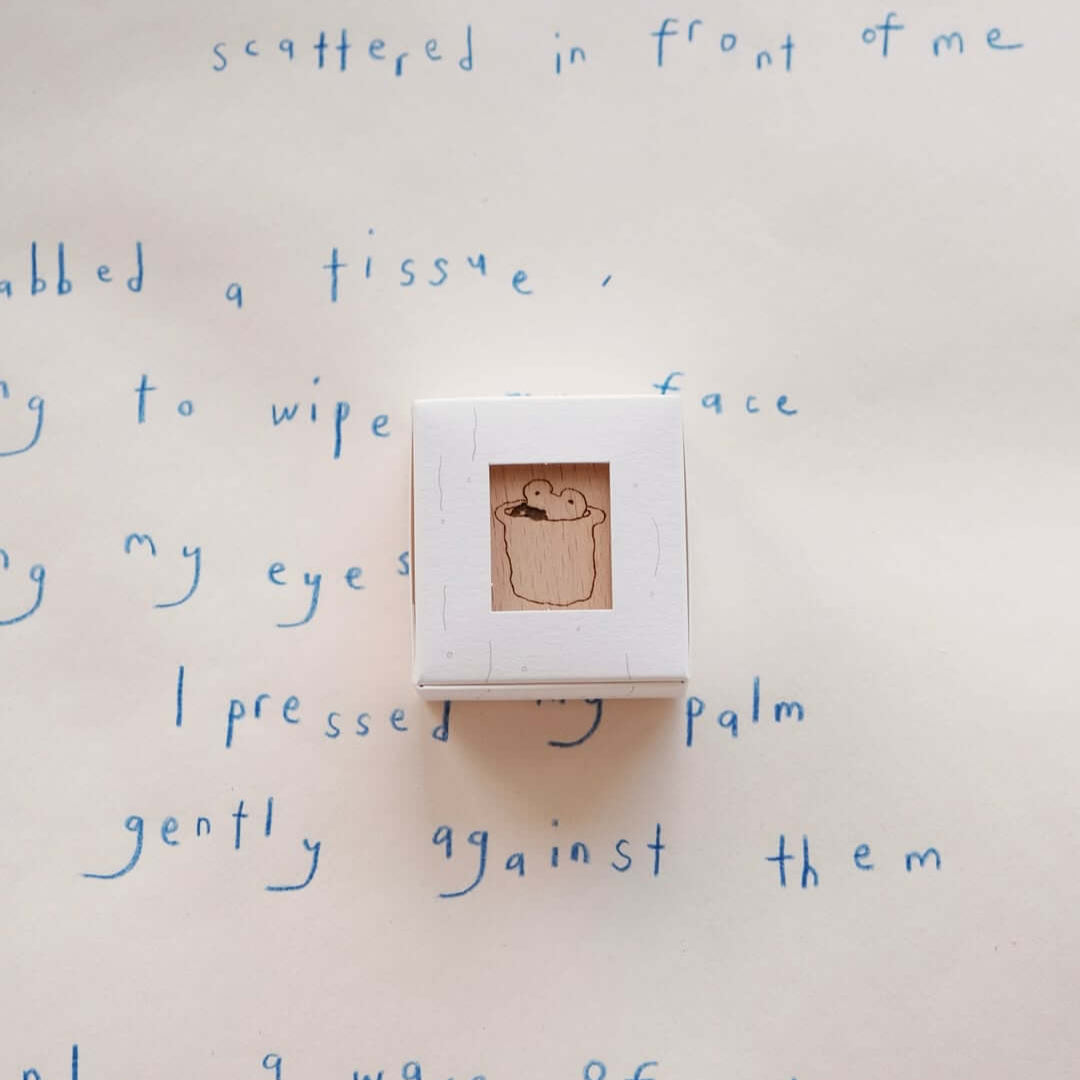 scattered in front of me
abbed a tissue,
to wipe face
my eyes
I pressed my palm
gently against them
a